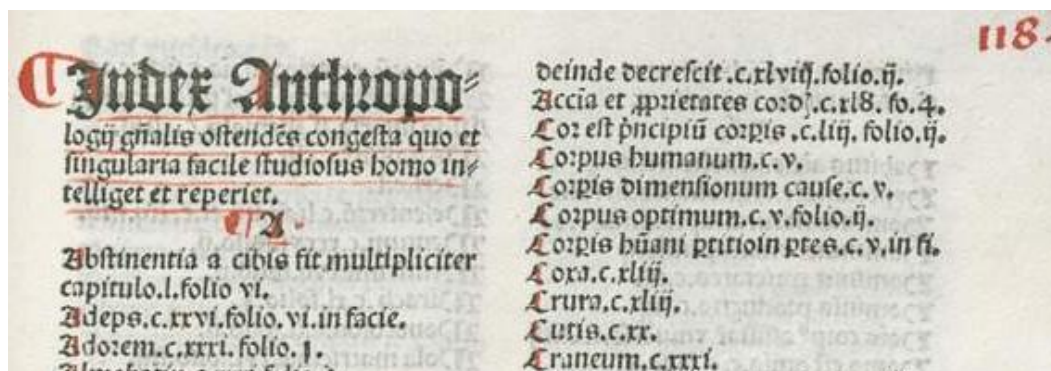 118.
Index Anthropo⸗
logij gñalis ostendẽs congesta quo et
singularia facile studiosus homo in⸗
telliget et reperiet.
¶ A
Abstinentia a cibis fit multipliciter
capitulo.l.folio vi.
Adeps.c.xxvi.folio.vi.in facie.
Adorem.c.xxxi.folio.j.
deinde decrescit.c.xlviij.folio.ij.
Accia et ꝓprietates cordꝭ.c.xl8. fo.4.
Cor est pͥncipiũ corpis.c.liij. folio.ij.
Corpus humanum.c.v.
Corpis dimensionum cause.c.v.
Corpus optimum.c.v.folio.ij.
Corpis hũani ptitio in ptes.c.v.in fi.
Coxa.c.xliij.
Crura.c.xliij.
Cutis.c.xx.
Craneum.c.xxxi.